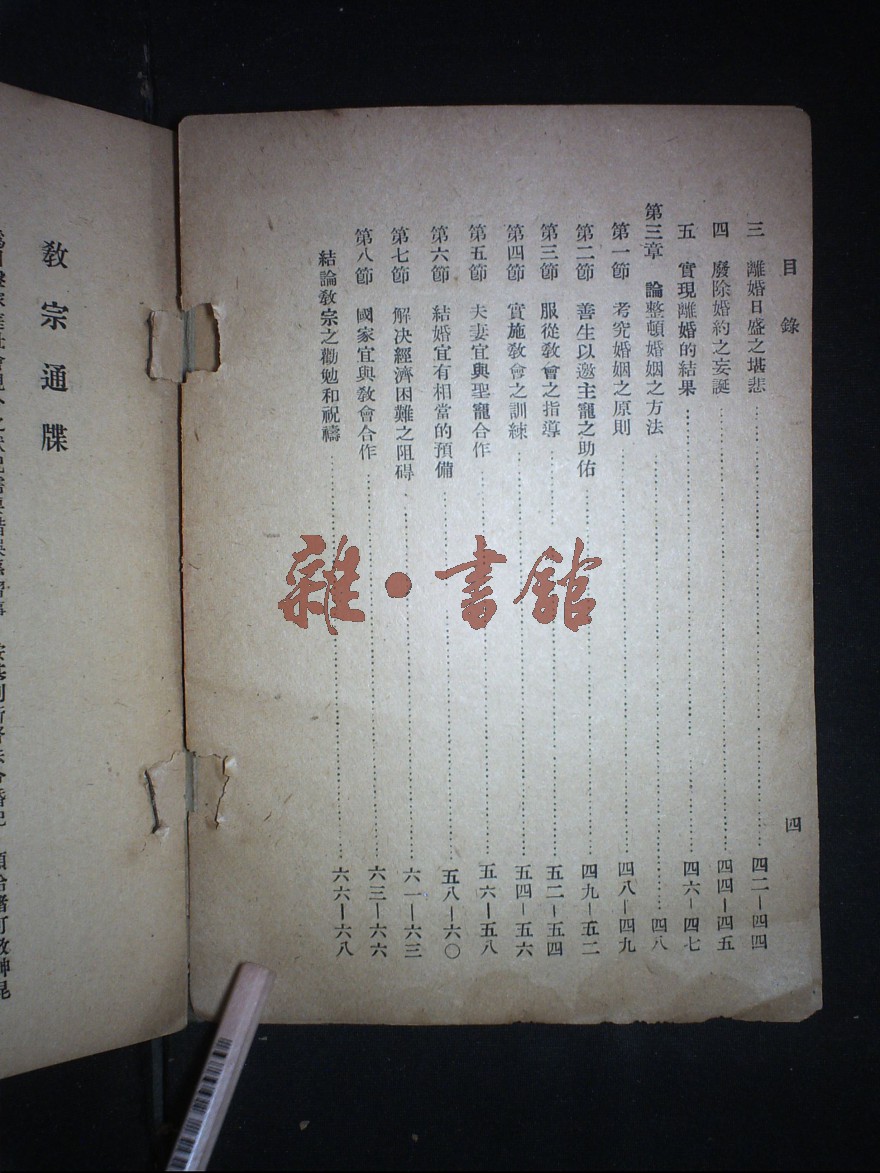 目錄
四
三 離婚日盛之堪悲 四二—四四
四 廢除婚約之妄誕 四四—四五
五 實現離婚的結果 四六—四七
第三章 論整頓婚姻之方法 四八
第一節 考究婚姻之原則 四八—四九
第二節 善生以邀主寵之助佑 四九—五二
第三節 服從敎會之指導 五二—五四
第四節 實施敎會之訓練 五四—五六
第五節 夫妻宜與聖寵合作 五六—五八
第六節 結婚宜有相當的預備 五八—六〇
第七節 解决經濟困難之阻碍 六一—六三
第八節 國家宜與敎會合作 六三—六六
結論敎宗之勸勉和祝禱 六六—六八
雜•書館
敎宗通牒